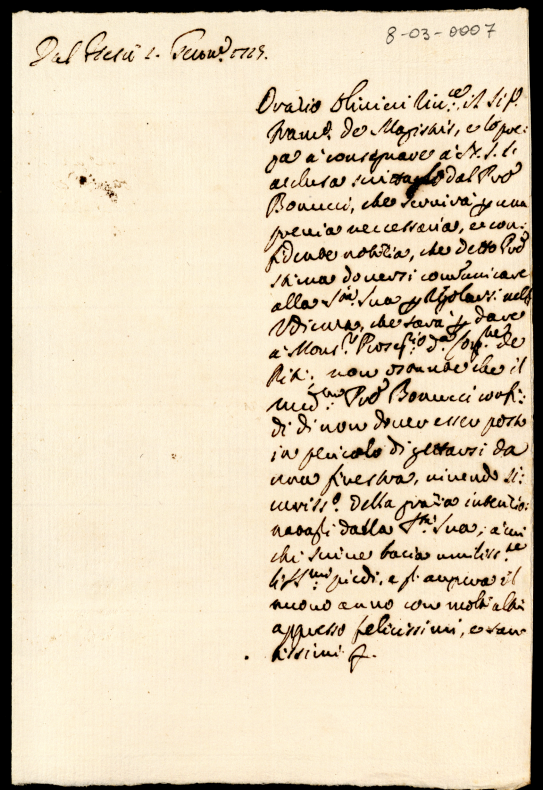 8-03-0007
Dal Gesù 1. Genn.o 1725.
Orazio Olivieri riu.ce il Sig.r
de Magistris, e lo pre-
ga à consegnare à N. S. l'
acclusa dal Pre
Bonucci, che servirà p una
previa neccessaria, e con-
fidente notizia, che detto Pre
stima doversi comunicare
alla S.tà Sua p regolarsi nell'
Udienza, che sarà p dare
à Mons.r d.a Cong.ne de
Riti. non ostante che il
med.mo Pre Bonucci confi-
di di non dover esser posto
in pericolo di gettarsi da
una finestra, vivendo si-
curiss.o della grazia intenzio-
natagli dalla S.tà Sua; à cui
chi scrive bacia umiliss.te
li SS.mi piedi, e gli augura il
nuovo anno con molti altri
appresso felicissimi, e san-
tissimi